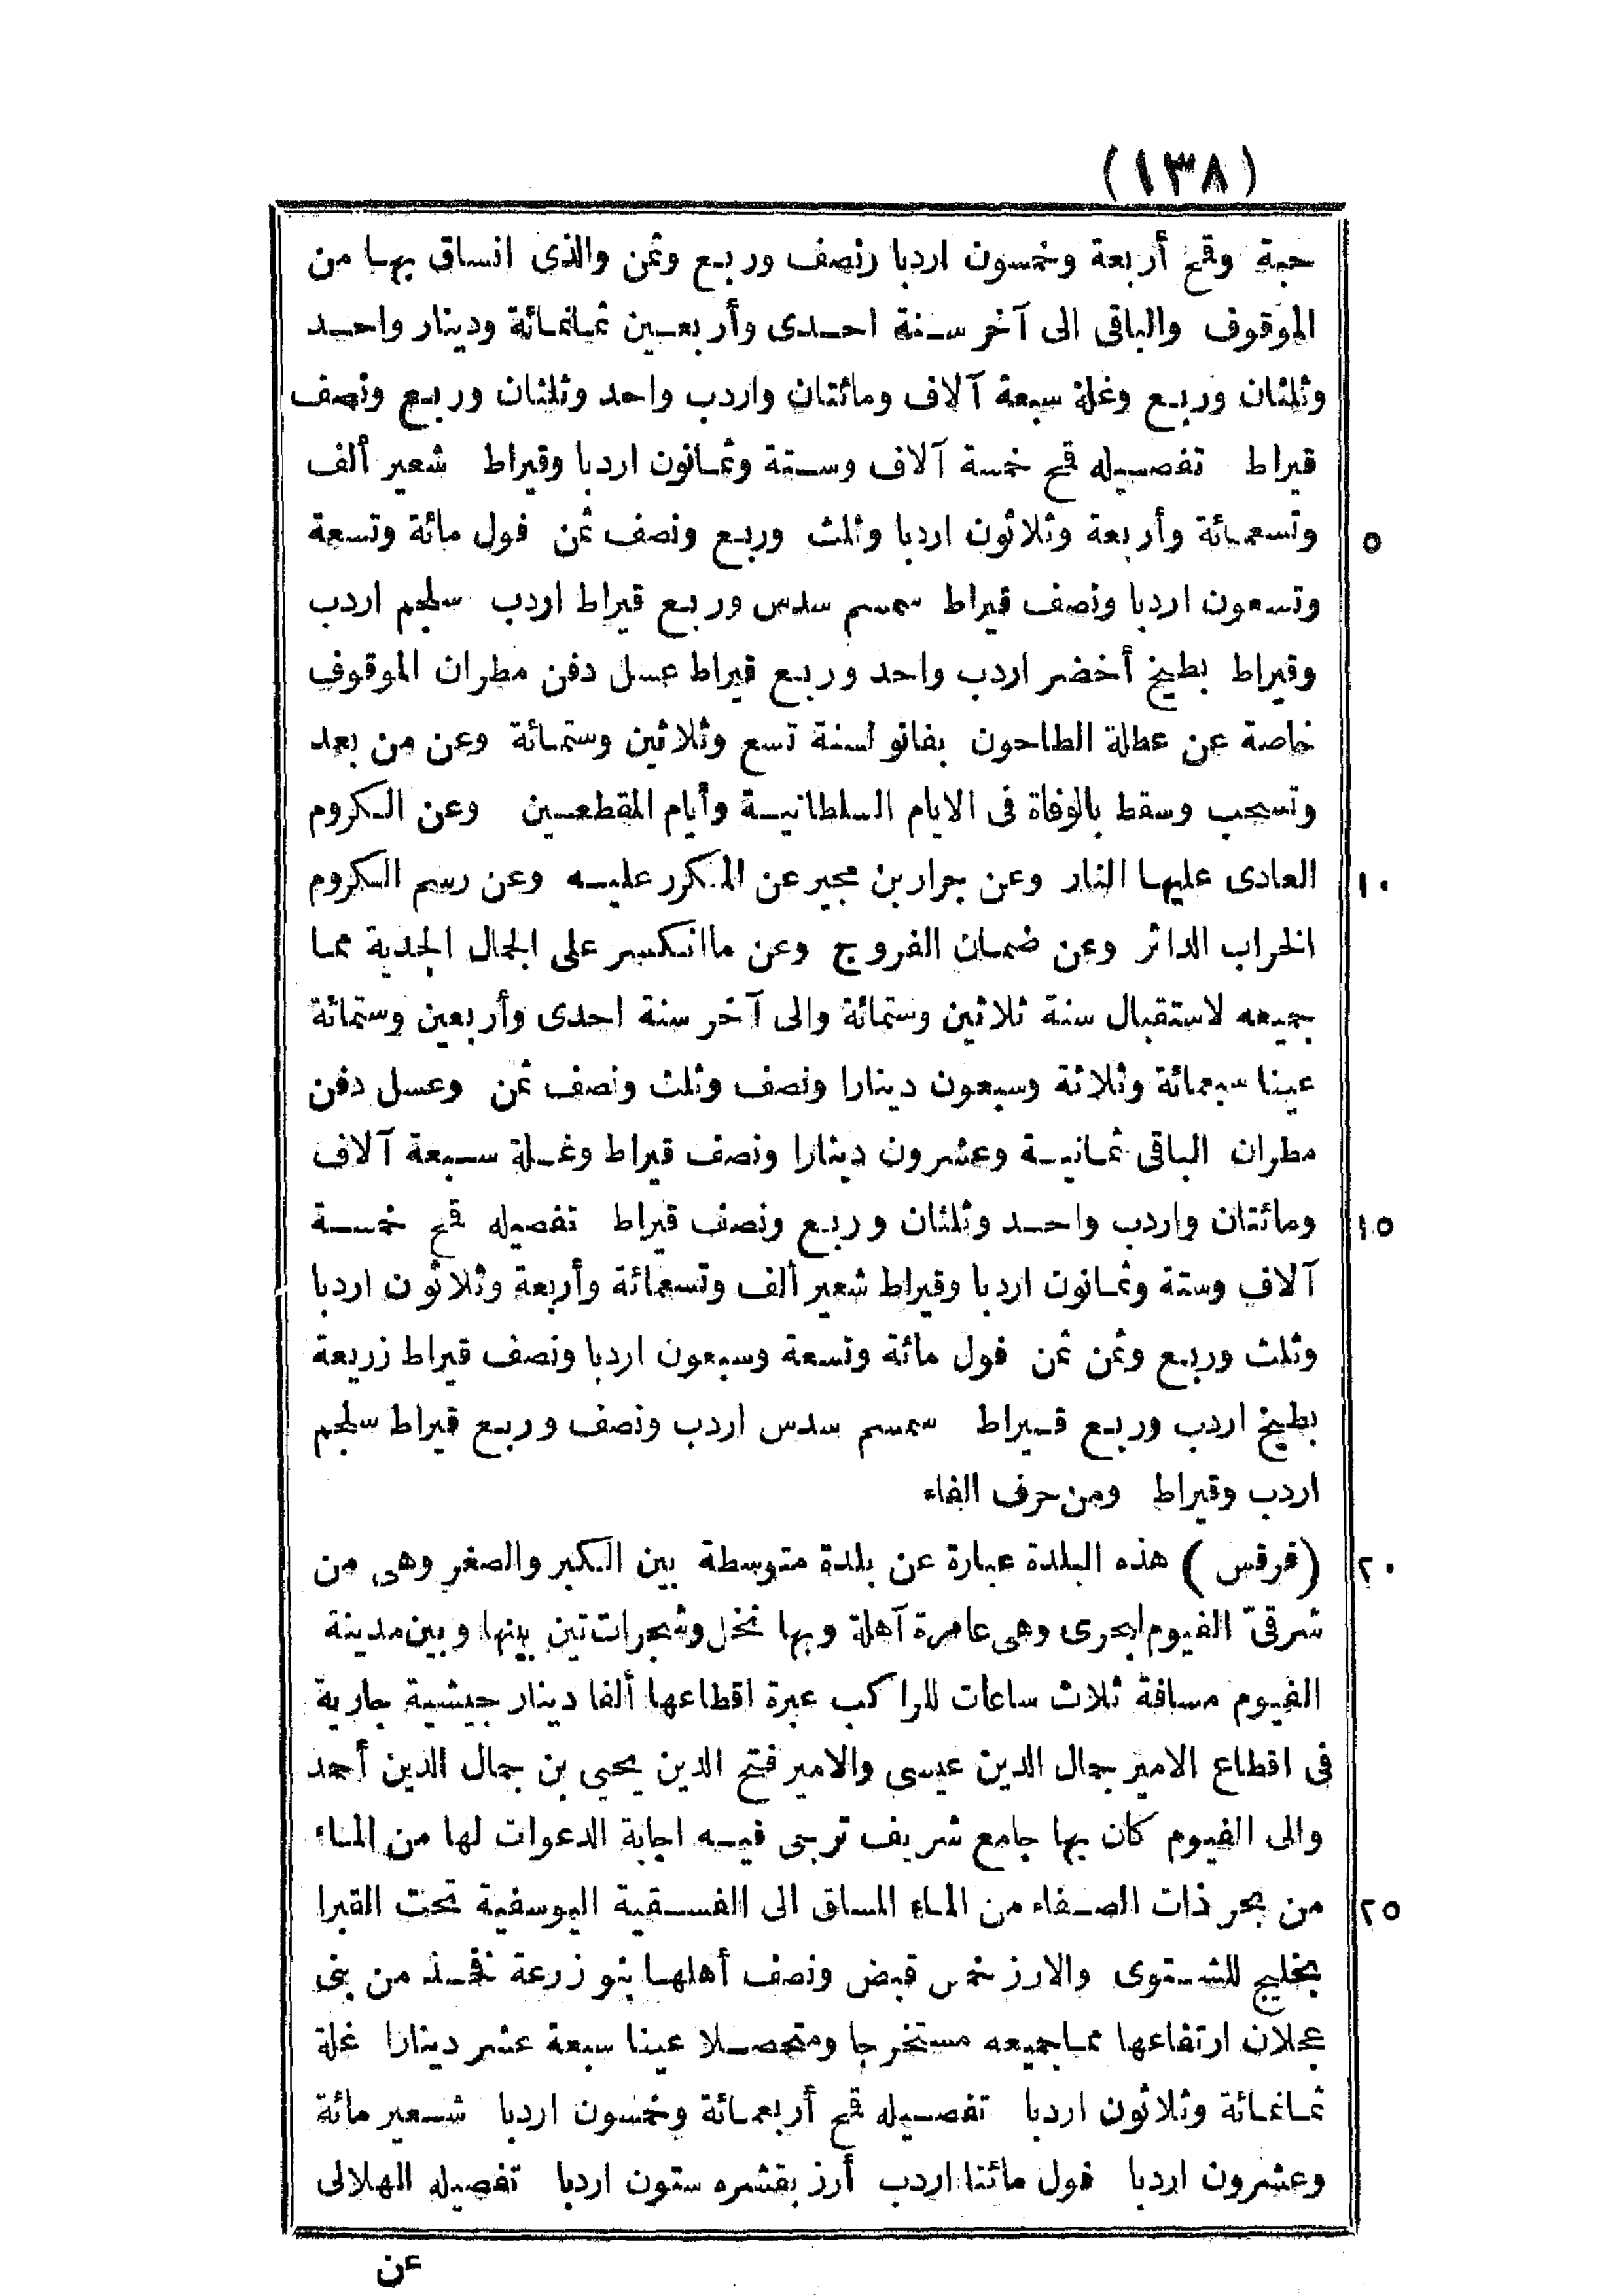 (١٣٨)
حبة وقمح أربعة وخمسون اردبا ونصف وربع وثمن والذى انساق بها من
الموقوف والباقى الى آخر سنة احدى وأربعين ثمانمائة ودينار واحد
وثلثان وربع وغلة سبعة آلاف ومائتان واردب واحد وثلثان وربع ونصف
قيراط تفصيله قمح خمسة آلاف وستة وثمانون اردبا وقيراط شعير ألف
٥ وتسعمائة وأربعة وثلاثون اردبا وثلث وربع ونصف ثمن فول مائة وتسعة
وتسعون اردبا ونصف قيراط سمسم سدس وربع قيراط اردب سلجم اردب
وقيراط بطيخ أخضر اردب واحد وربع قيراط عسل دفن مطران الموقوف
خاصة عن عطلة الطاحون بفانو لسنة تسع وثلاثين وستمائة وعن من بعد
وتسحب وسقط بالوفاة فى الايام السلطانية وأيام المقطعين وعن الكروم
١٠ العادى عليها النار وعن جرار بن مجير عن المكرر عليه وعن رسم الكروم
الخراب الداثر وعن ضمان الفروج وعن ما انكسر على الجمال الجدية مما
جميعه لاستقبال سنة ثلاثين وستمائة والى آخر سنة احدى وأربعين وستمائة
عينا سبعمائة وثلاثة وسبعون دينارا ونصف وثلث ونصف ثمن وعسل دفن
مطران الباقى ثمانية وعشرون دينارا ونصف قيراط وغلة سبعة آلاف
١٥ ومائتان واردب واحد وثلثان وربع ونصف قيراط تفصيله قمح خمسة
آلاف وستة وثمانون اردبا وقيراط شعير ألف وتسعمائة وأربعة وثلاثون اردبا
وثلث وربع وثمن ثمن فول مائة وتسعة وسبعون اردبا ونصف قيراط زريعة
بطيخ اردب وربع قيراط سمسم سدس اردب ونصف وربع قيراط سلجم
اردب وقيراط ومن حرف الفاء
٢٠ (فرقس) هذه البلدة عبارة عن بلدة متوسطة بين الكبر والصغر وهى من
شرقىّ الفيوم لبحرى وهى عامرة آهلة وبها نخل وشجرات تين بينها وبين مدينة
الفيوم مسافة ثلاث ساعات للراكب عبرة اقطاعها ألفا دينار جيشية جارية
فى اقطاع الامير جمال الدين عيسى والامير فتح الدين يحيى بن جمال الدين أحمد
والى الفيوم كان بها جامع شريف ترجى فيه اجابة الدعوات لها من الماء
٢٥ من بحر ذات الصفاء من الماء المساق الى الفسقية اليوسفية تحت القبرا
بخليج للشتوى والارز خمس قبض ونصف أهلها بنو زرعة فخذ من بنى
عجلان ارتفاعها مما جميعه مستخرجا ومتحصلا عينا سبعة عشر دينارا غلة
ثمانمائة وثلاثون اردبا تفصيله قمح أربعمائة وخمسون اردبا شعير مائة
وعشرون اردبا فول مائتا اردب أرز بقشره ستون اردبا تفصيله الهلالى
عن